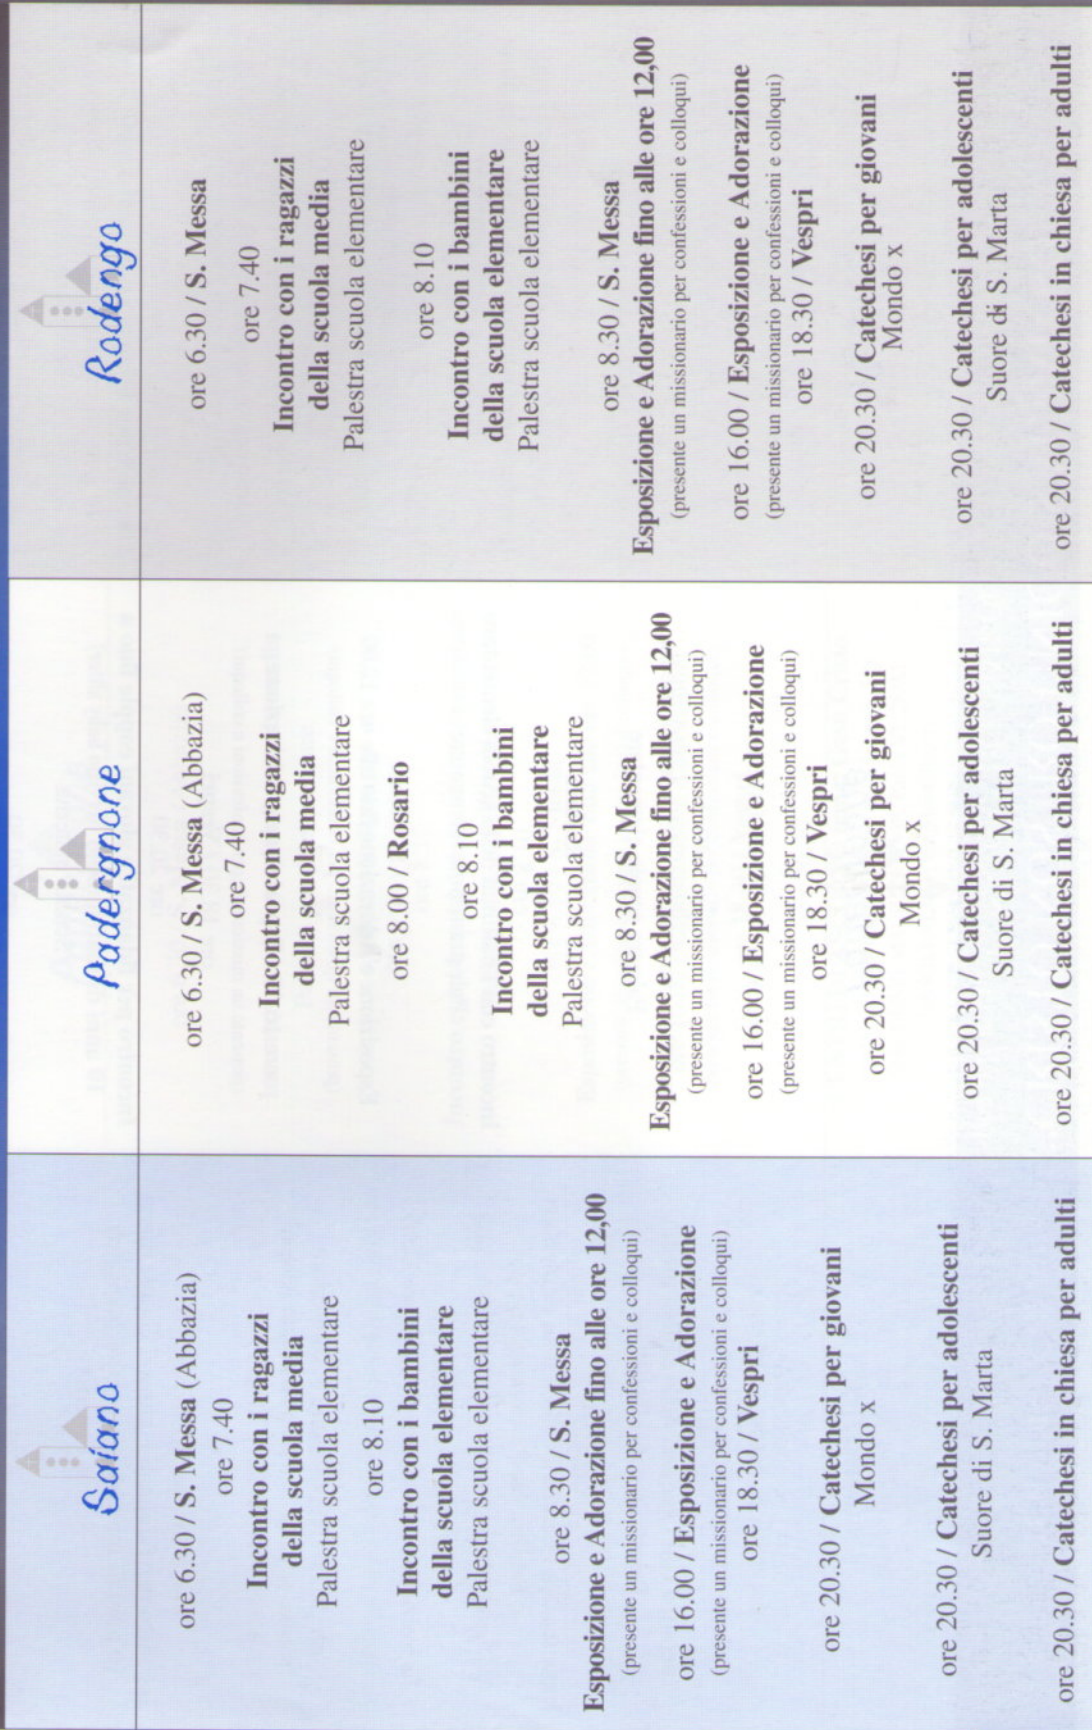 Saiano
ore 6.30 / S. Messa (Abbazia)
ore 7.40
Incontro con i ragazzi
della scuola media
Palestra scuola elementare
ore 8.10
Incontro con i bambini
della scuola elementare
Palestra scuola elementare
ore 8.30 / S. Messa
Esposizione e Adorazione fino alle ore 12,00
(presente un missionario per confessioni e colloqui)
ore 16.00 / Esposizione e Adorazione
(presente un missionario per confessioni e colloqui)
ore 18.30 / Vespri
ore 20.30 / Catechesi per giovani
Mondo x
ore 20.30 / Catechesi per adolescenti
Suore di S. Marta
ore 20.30 / Catechesi in chiesa per adulti
Padergnone
ore 6.30 / S. Messa (Abbazia)
ore 7.40
Incontro con i ragazzi
della scuola media
Palestra scuola elementare
ore 8.00 / Rosario
ore 8.10
Incontro con i bambini
della scuola elementare
Palestra scuola elementare
ore 8.30 / S. Messa
Esposizione e Adorazione fino alle ore 12,00
(presente un missionario per confessioni e colloqui)
ore 16.00 / Esposizione e Adorazione
(presente un missionario per confessioni e colloqui)
ore 18.30 / Vespri
ore 20.30 / Catechesi per giovani
Mondo x
ore 20.30 / Catechesi per adolescenti
Suore di S. Marta
ore 20.30 / Catechesi in chiesa per adulti
Rodengo
ore 6.30 / S. Messa
ore 7.40
Incontro con i ragazzi
della scuola media
Palestra scuola elementare
ore 8.10
Incontro con i bambini
della scuola elementare
Palestra scuola elementare
ore 8.30 / S. Messa
Esposizione e Adorazione fino alle ore 12,00
(presente un missionario per confessioni e colloqui)
ore 16.00 / Esposizione e Adorazione
(presente un missionario per confessioni e colloqui)
ore 18.30 / Vespri
ore 20.30 / Catechesi per giovani
Mondo x
ore 20.30 / Catechesi per adolescenti
Suore di S. Marta
ore 20.30 / Catechesi in chiesa per adulti